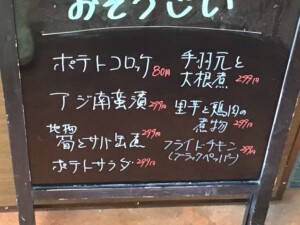 おそうざい
ポテトコロッケ 80円
アジ南蛮漬 299円
地物
筍とサバ 299円
ポテトサラダ 299円
手羽元と
大根煮 299円
里芋と鶏肉の
煮物 299円
フライドチキン
(ブラックペッパー) 299円